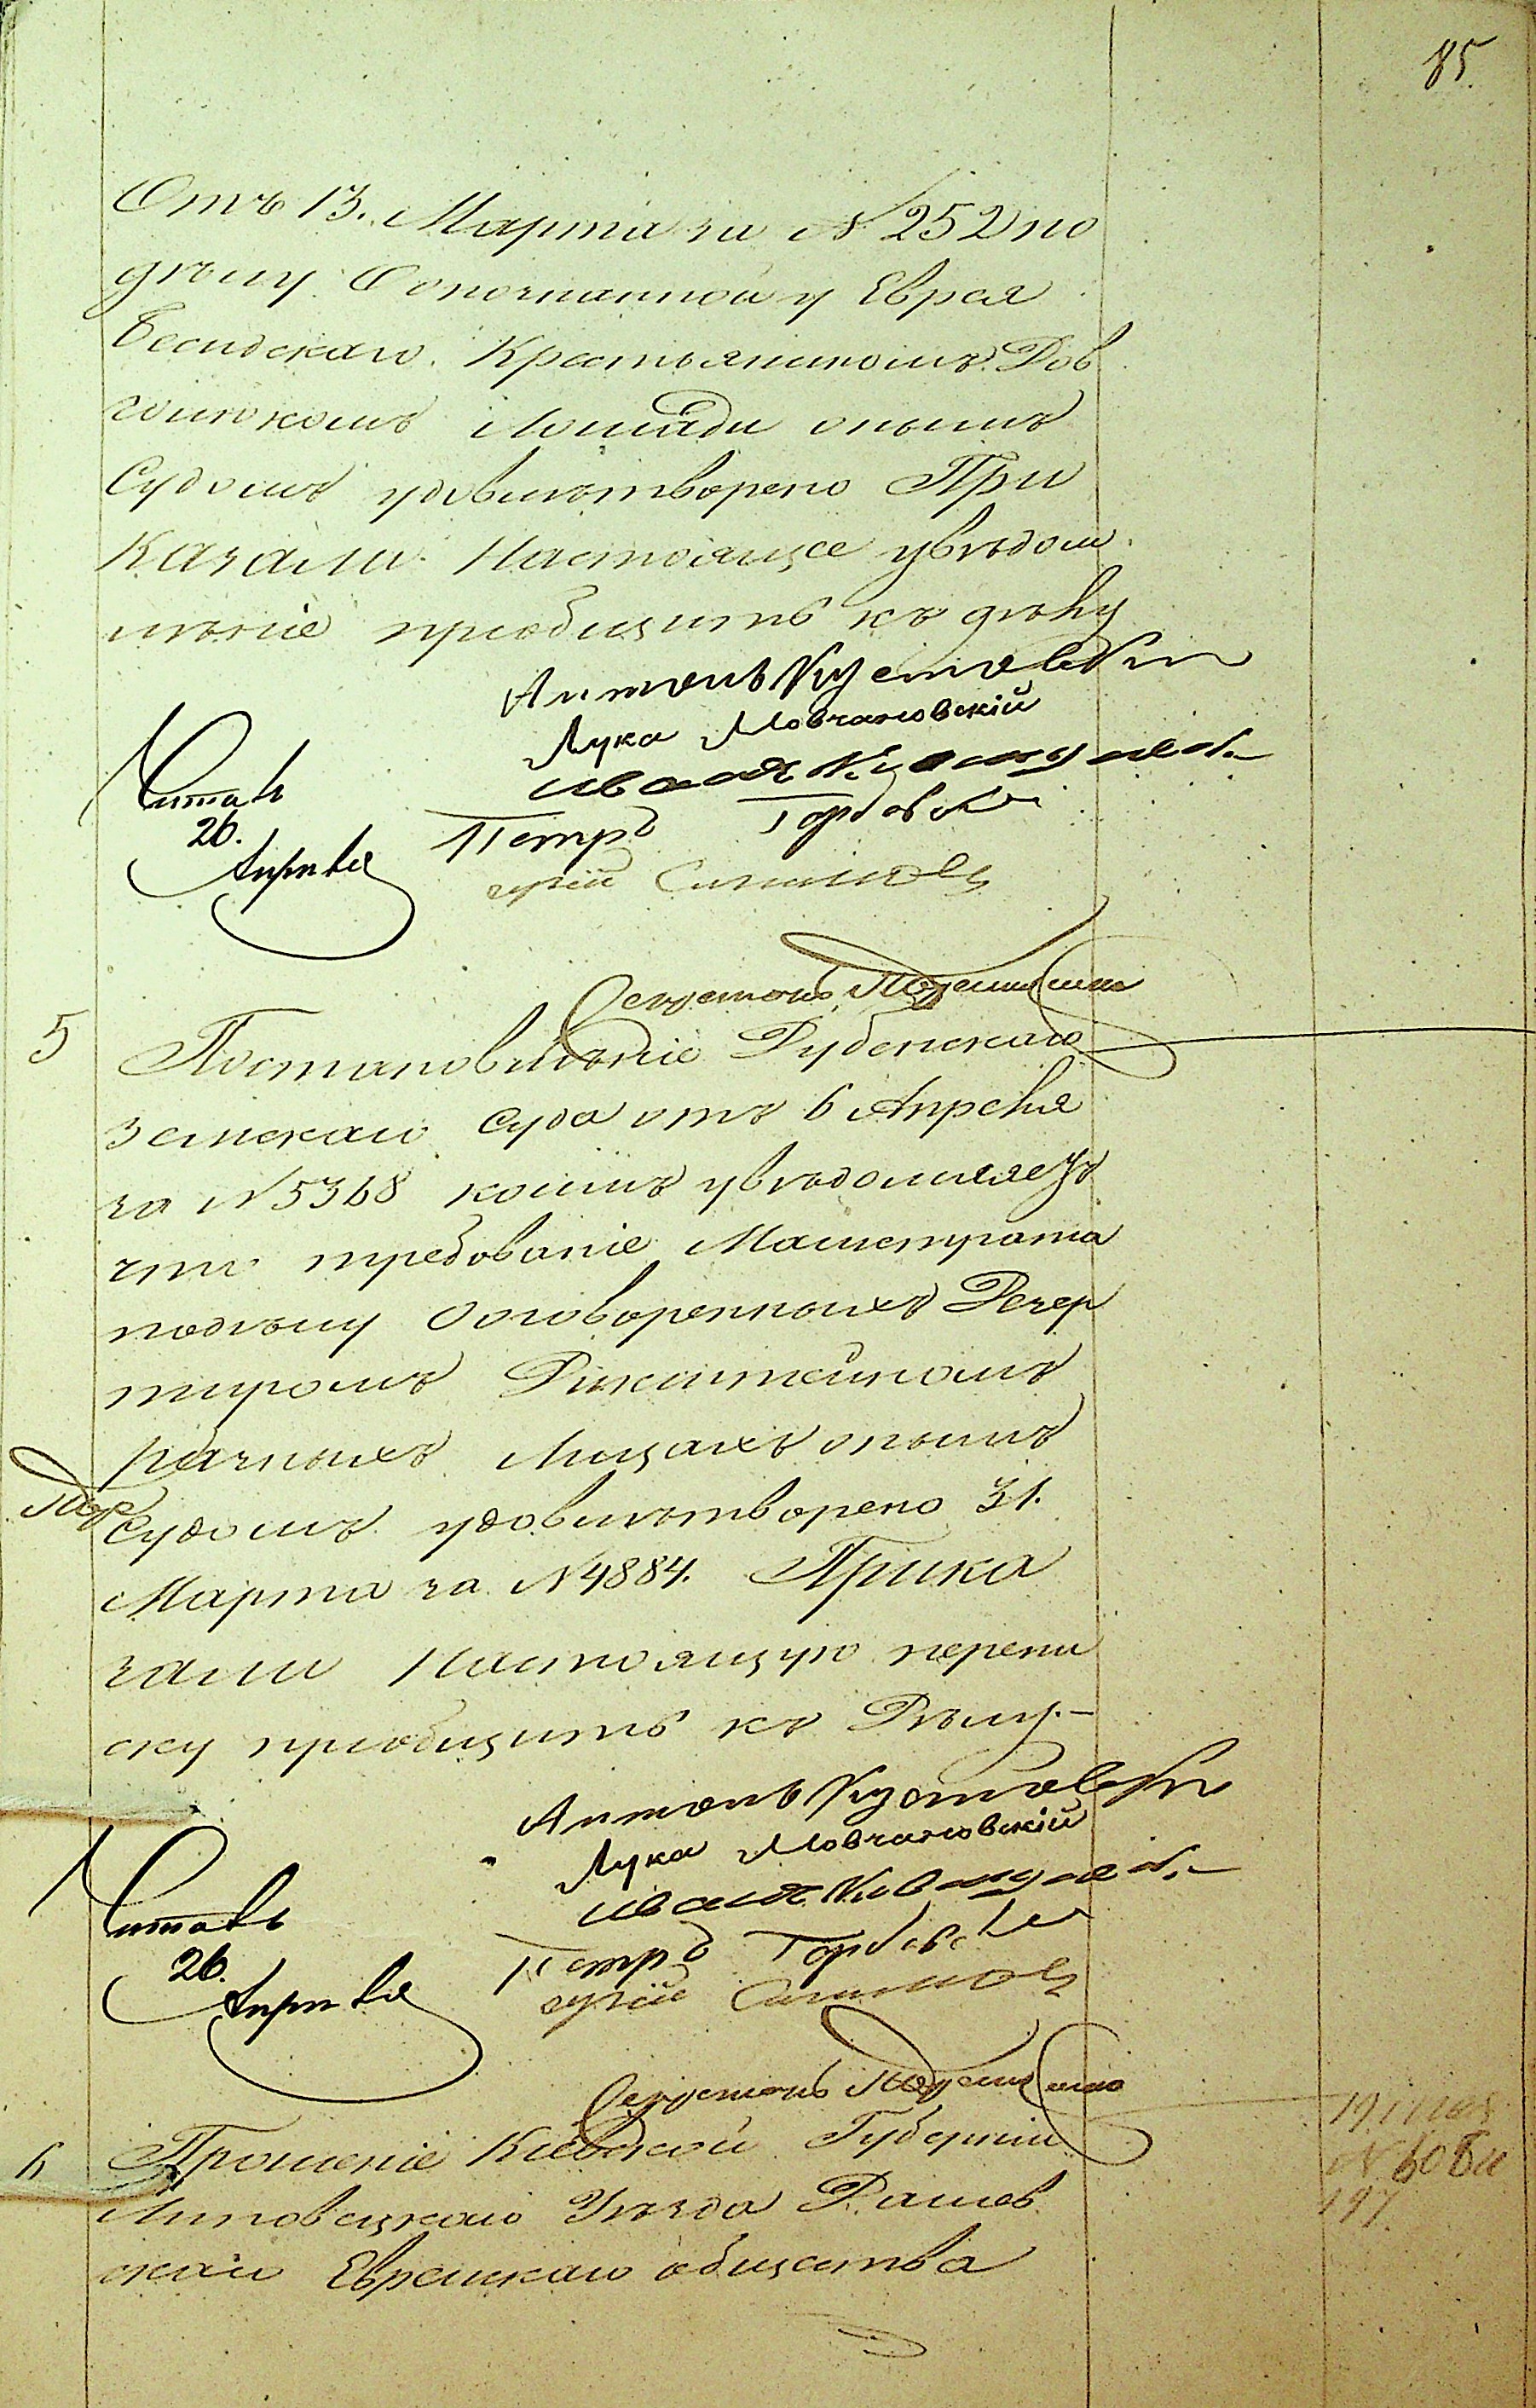 85.
Отъ 13. Марта за № 252 по
дѣлу О опознанной у Еврея
Крестьяниномъ Дов
Лошади онымъ
Судомъ удовлѣтворено При
казали. Настоящее увѣдом
лѣніе приобщить къ дѣлу
Антонъ
Лука Мовчановскій
Иванъ
Петръ Горбовскій
Читалъ
26.
Апрѣля
Секретарь
5
Постановлѣніе Дубенскаго
Земскаго Суда отъ 6 Апреля
за № 5368 коимъ увѣдомляетъ
что требованіе Магистрата
подѣлу Оговоренныхъ Дезер
тиромъ
разныхъ Лицахъ онымъ
Судомъ удовлѣтворено 31.
Марта за № 4884. Прика
зали Настоящую перепи
ску приобщить къ Дѣлу.-
Антонъ
Лука Мовчановскій
Иванъ
Петръ Горбовскій
Читалъ
26.
Апрѣля
Секретарь
6
Прошеніе Кіевской Губерніи
Липовецкаго Уѣзда
скаго Еврейскаго общества